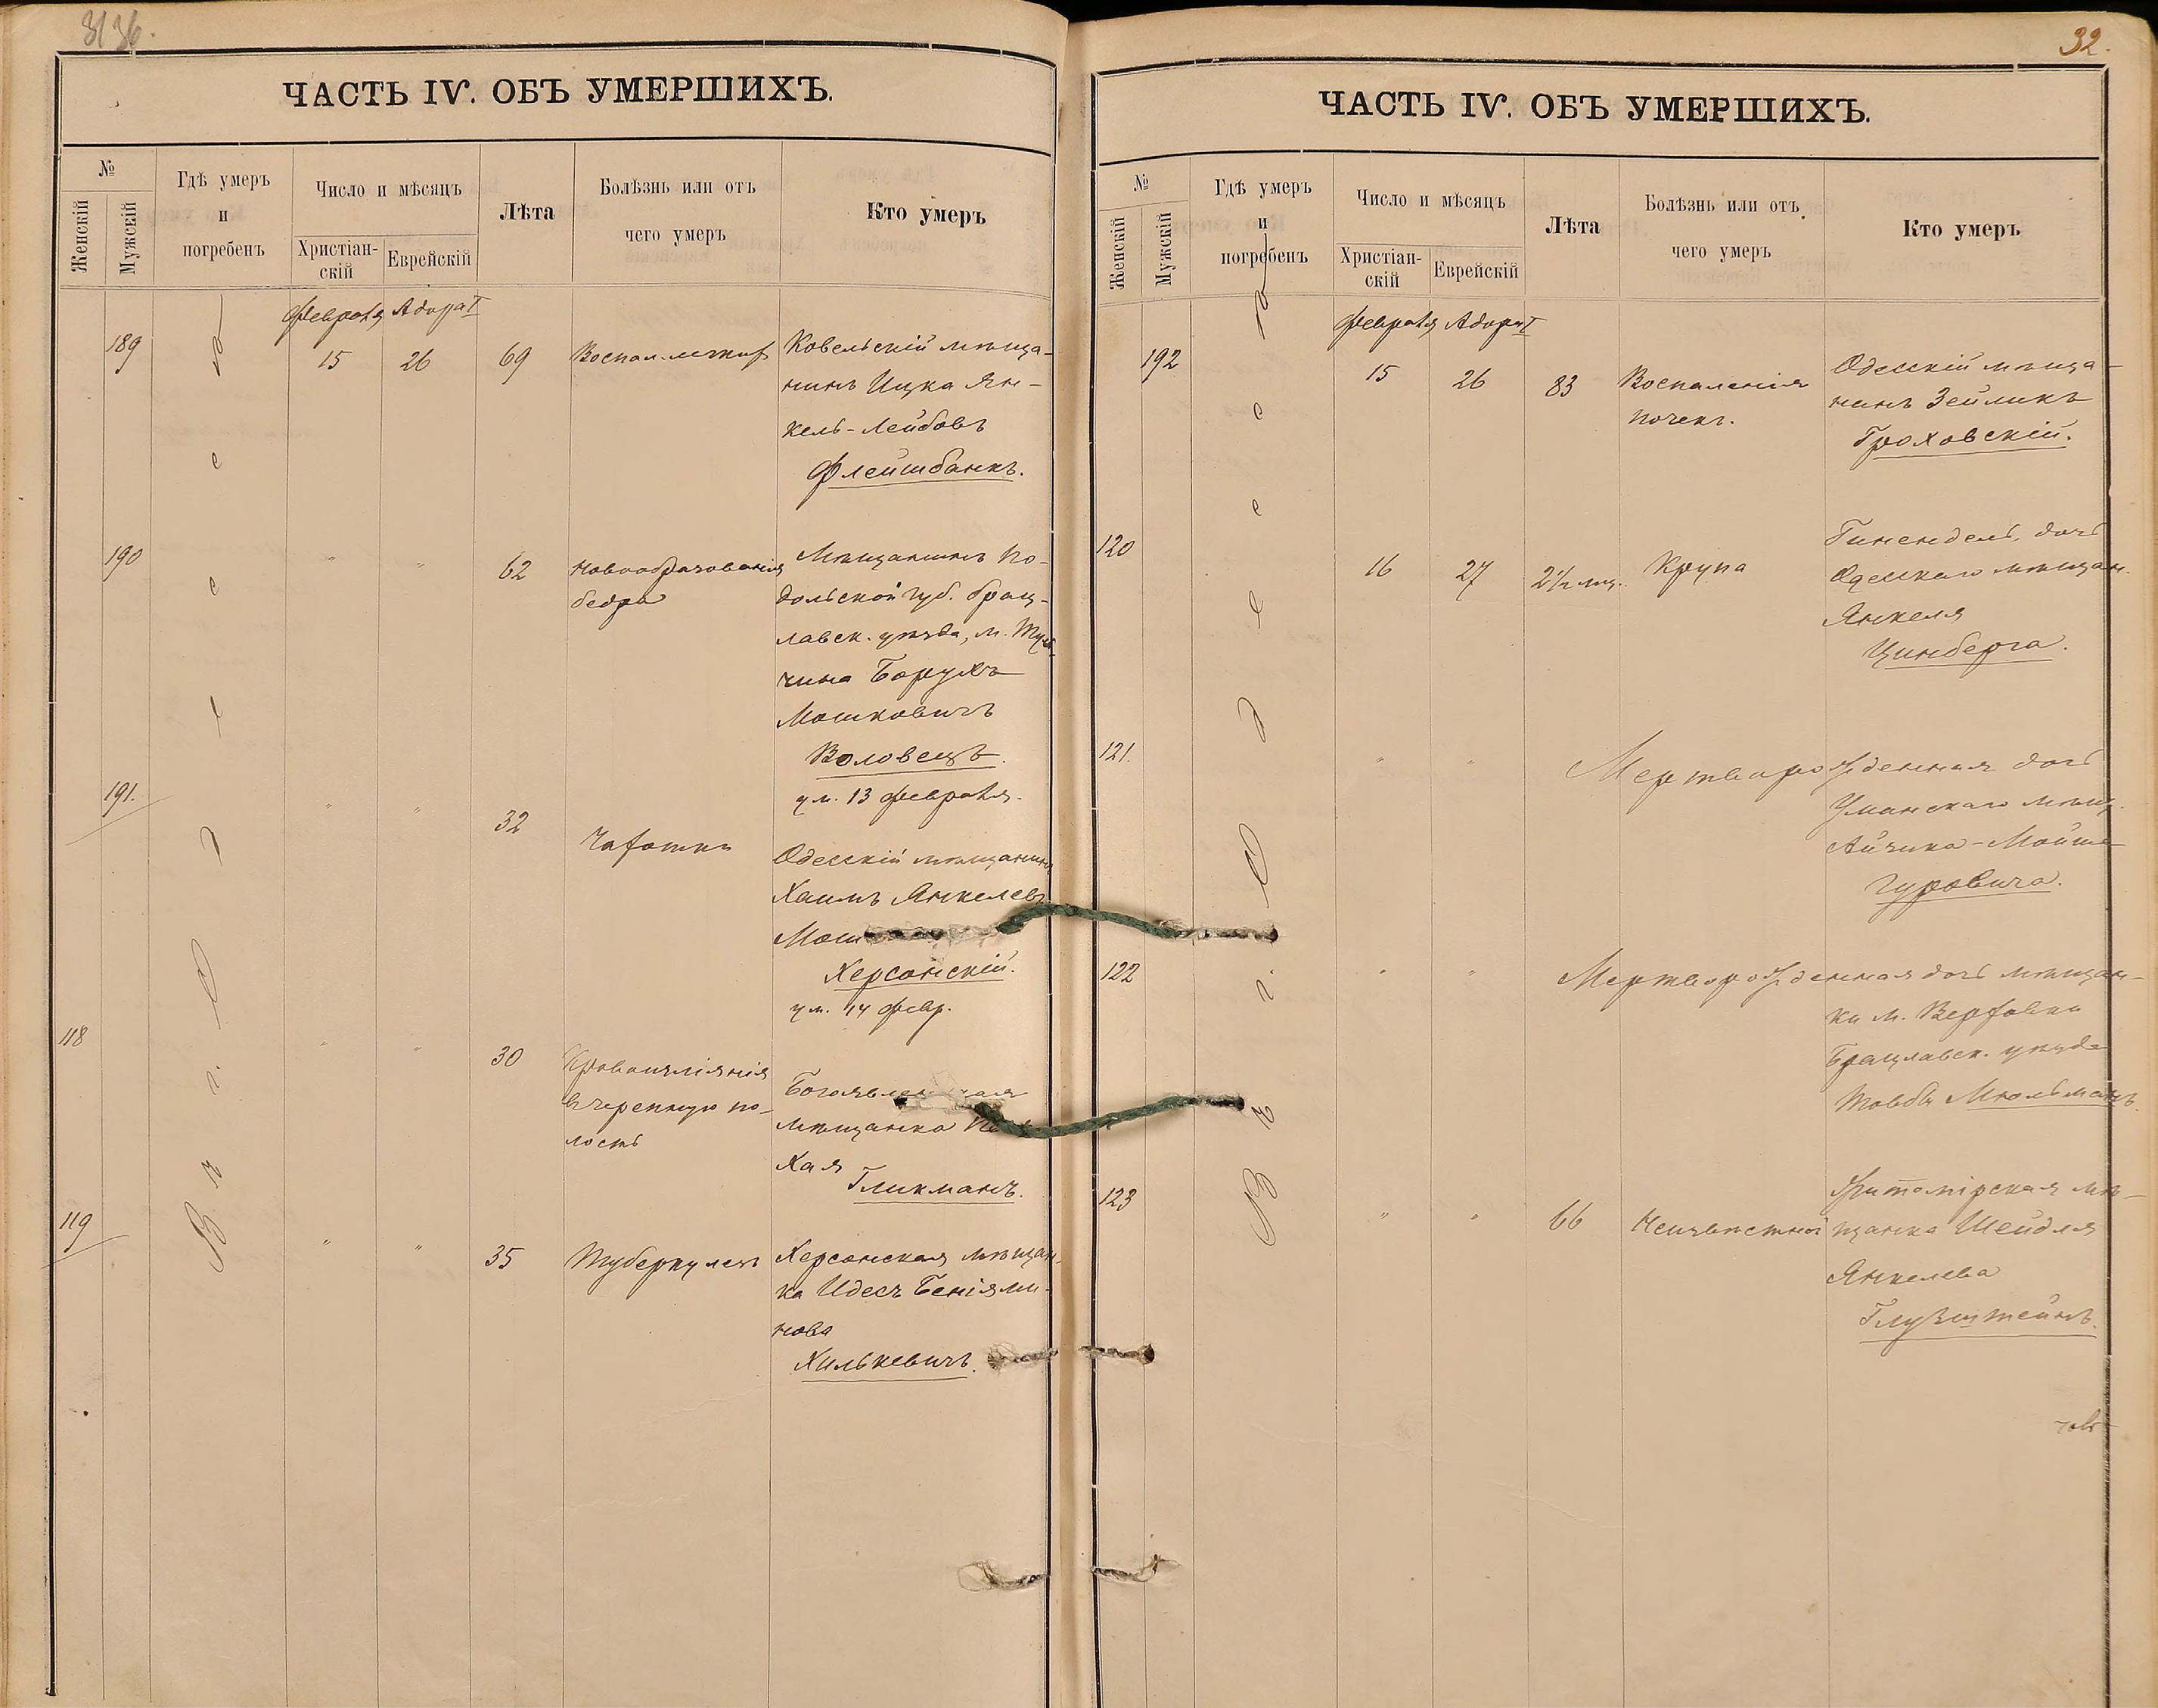 3136.
ЧАСТЬ IV. ОБЪ УМЕРШИХЪ.
№
Женскій
Мужскій
Гдѣ умеръ
и
погребенъ
Число и мѣсяцъ
Христіан-
скій
Еврейскій
Лѣта
Болѣзнь или отъ
чего умеръ
Кто умеръ
В г. Одессѣ
Февраля Адора I
189
15
26
69
Воспал. легких
Ковельскій мѣща-
нинъ Ицка Ян-
кель-Лейбовъ
Флейшбанкъ.
190
"
"
62
Новообразованія
бедра
Мѣщанинъ По-
дольской губ. брац-
лавск. уѣзда, м. Туль-
чина Борухъ
Мошковичъ
Воловецъ.
ум. 13 февраля.
191.
"
"
32
Чахотки
Одесскій мѣщанинъ
Хаимъ Янкелев
Мош
Херсонскій.
ум. 14 февр.
118
"
"
30
Кровоизліянія
въ черепную по-
лость
мѣщанка
Хая
Гликманъ.
119
"
"
35
Туберкулезъ
Херсонская мѣщан-
ка Идесъ Беніями-
нова
Хилькевичъ.
32.
ЧАСТЬ IV. ОБЪ УМЕРШИХЪ.
№
Женскій
Мужскій
Гдѣ умеръ
и
погребенъ
Число и мѣсяцъ
Христіан-
скій
Еврейскій
Лѣта
Болѣзнь или отъ
чего умеръ
Кто умеръ
В г. Одессѣ
Февраля Адора I
192
15
26
83
Воспаленія
почекъ.
Одесскій мѣща-
нинъ Зейликъ
Гроховскій.
120
16
27
2½ мѣс.
Крупа
Гинендель, дочь
Одесскаго мѣщан.
Янкеля
Цинберга.
121.
"
"
Мертворожденная дочь
Уманскаго мѣщ.
Айзика-Мойше
Гуровича.
122
"
"
Мертворожденная дочь мѣщан-
ки м. Верховки
Брацлавск. уѣзда
Товбы Мюльманъ.
123
"
"
66
Неизвѣстной
Житомірская мѣ-
щанка Шейдля
Янкелева
Глузштейнъ.